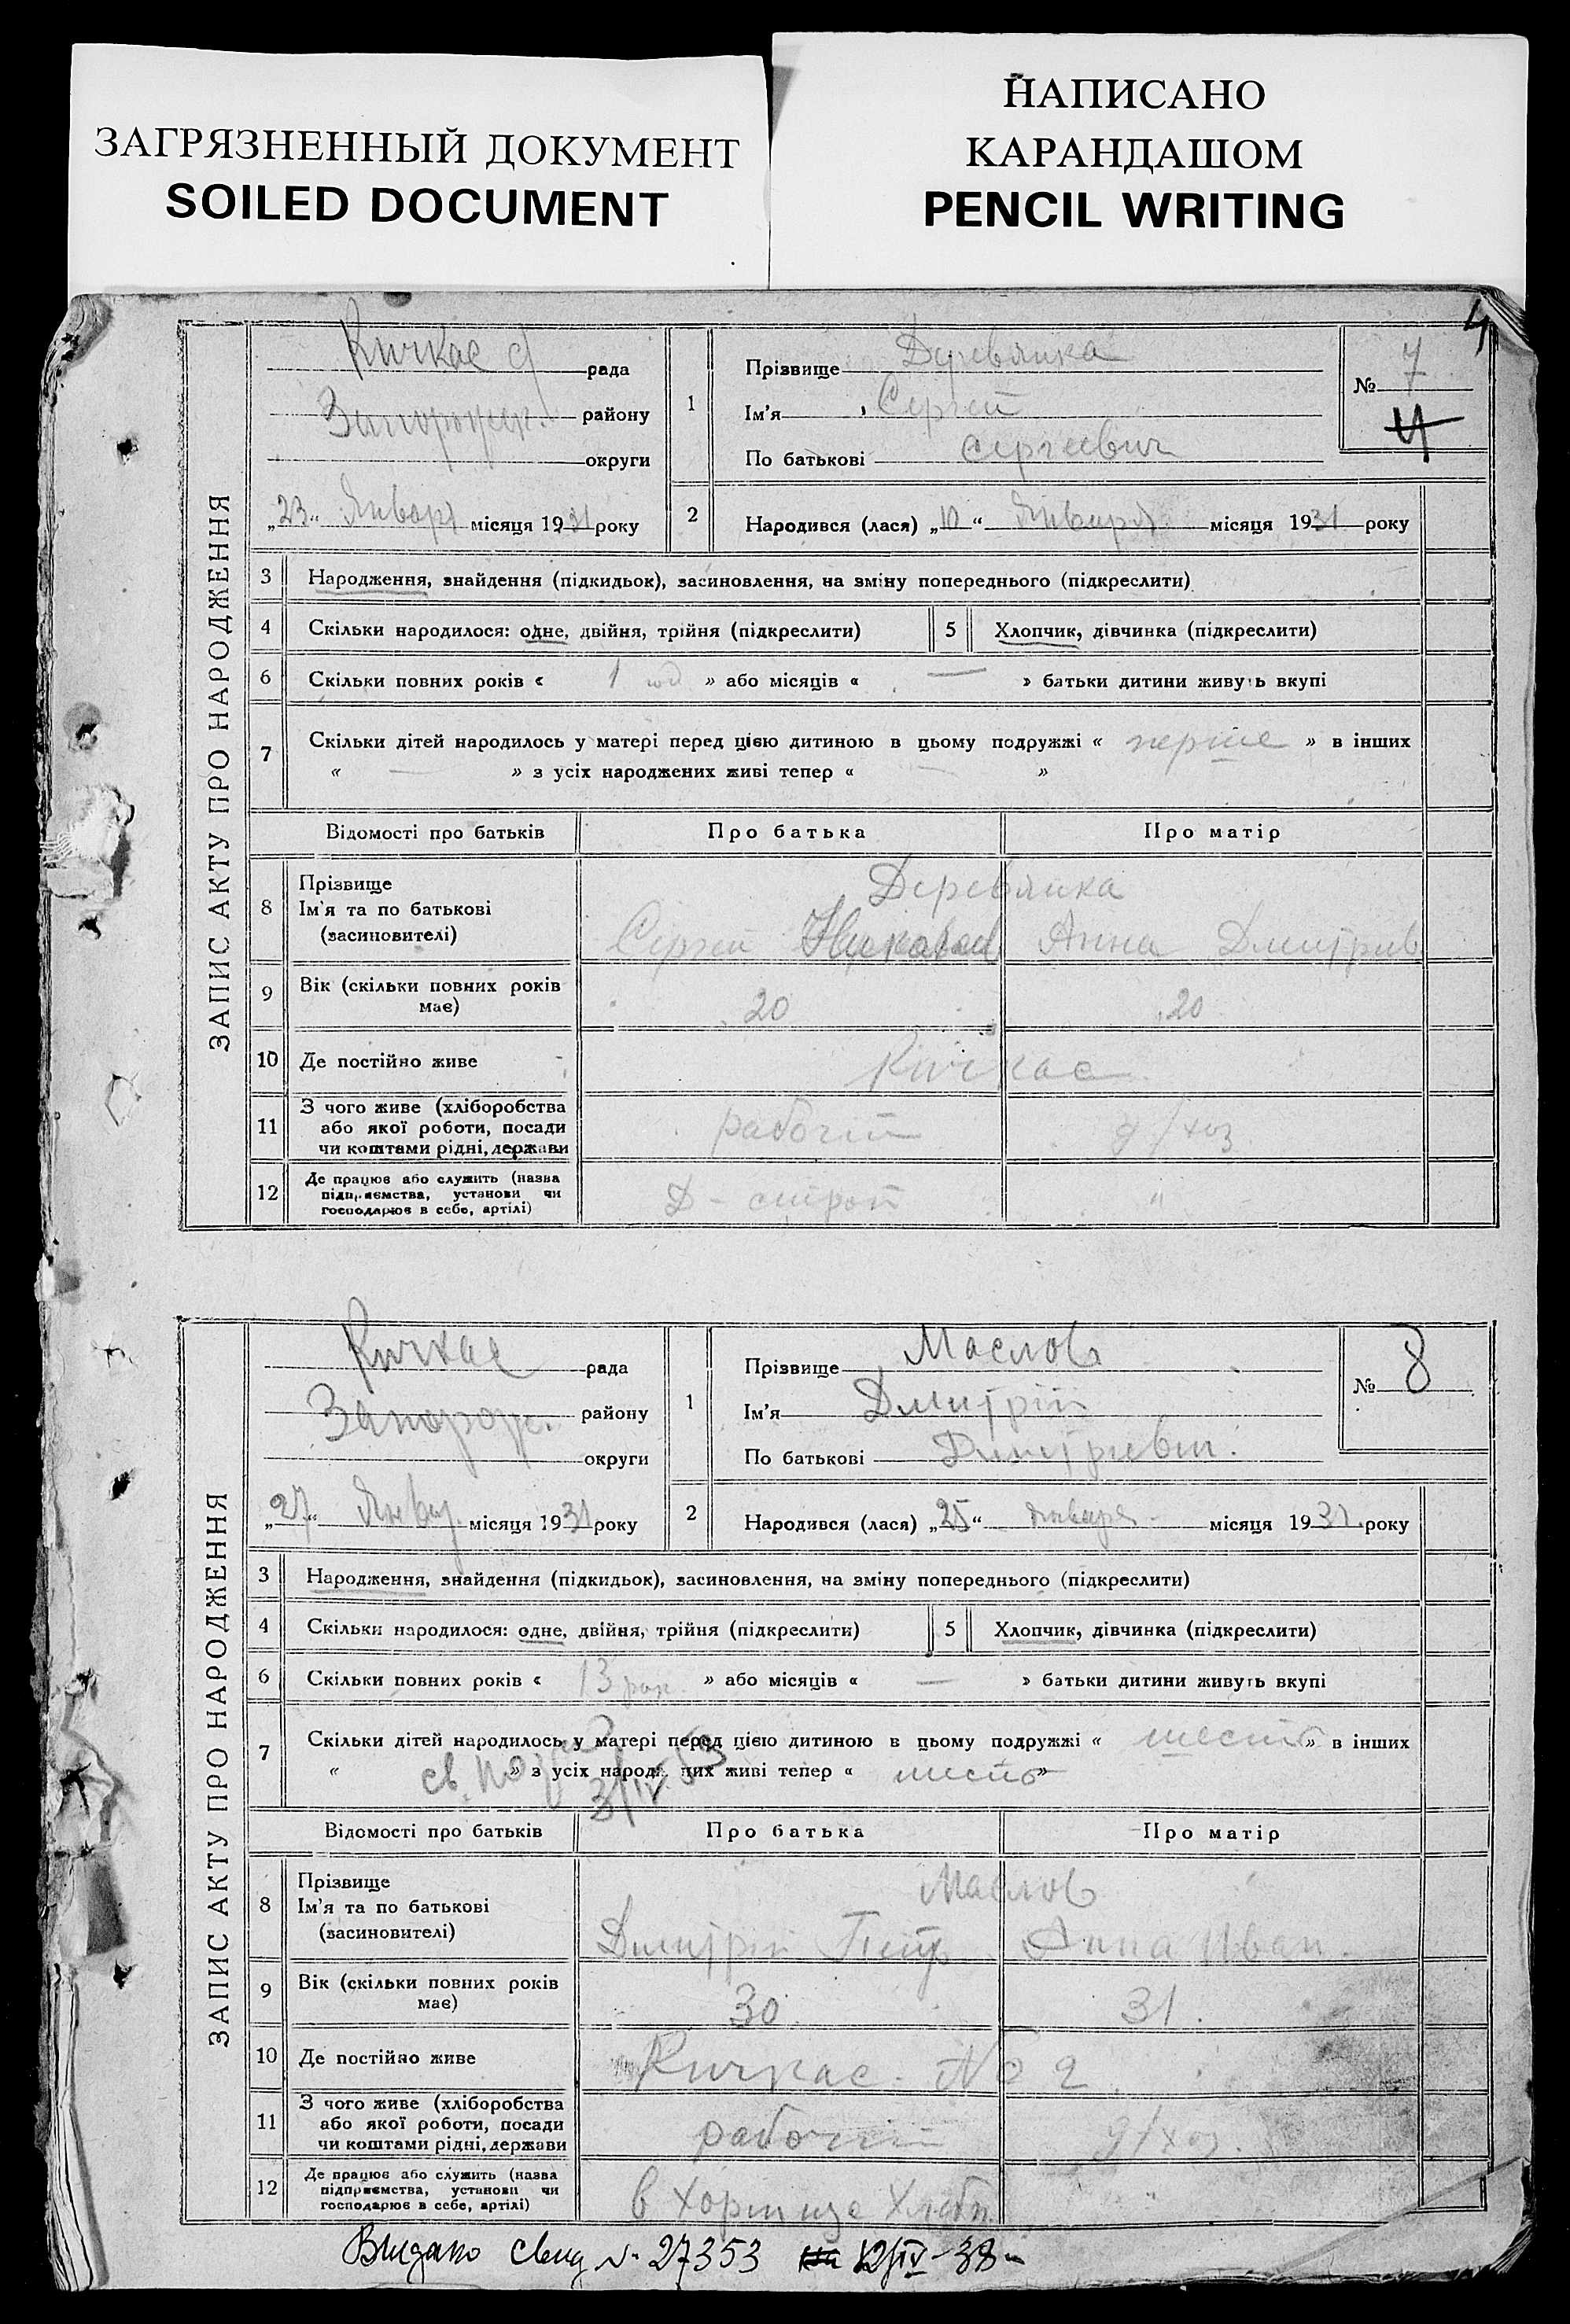 ЗАГРЯЗНЕННЫЙ ДОКУМЕНТ
SOILED DOCUMENT
НАПИСАНО
КАРАНДАШОМ
PENCIL WRITING
4
ЗАПИС АКТУ ПРО НАРОДЖЕННЯ
Кичкас рада
Запорожск. району
округи
„23“ Января місяця 1931 року
1
Прізвище Деревянка
Ім'я Сергей
По батькові Сергеевич
№ 7
4
2 Народився (лася) „10“ Января місяця 1931 року
3 Народження, знайдення (підкидьок), засиновлення, на зміну попереднього (підкреслити)
4 Скільки народилося: одне, двійня, трійня (підкреслити) 5 Хлопчик, дівчинка (підкреслити)
6 Скільки повних років « 1 год » або місяців « — » батьки дитини живуть вкупі
7 Скільки дітей народилось у матері перед цією дитиною в цьому подружжі « перше » в інших
« — » з усіх народжених живі тепер « — »
Відомості про батьків Про батька Про матір
8 Прізвище Деревянка
Ім'я та по батькові
(засиновителі) Сергей Анна Дмитрив
9 Вік (скільки повних років
має) 20 20
10 Де постійно живе Кичкас
11 З чого живе (хліборобства
або якої роботи, посади
чи коштами рідні, держави рабочий д/хоз
12 Де працює або служить (назва
підприємства, установи чи
господарює в себе, артілі) Д-строй "
ЗАПИС АКТУ ПРО НАРОДЖЕННЯ
Кичкас рада
Запорож. району
округи
„27“ Январ. місяця 1931 року
1
Прізвище Маслов
Ім'я Дмитрій
По батькові Дмитриевич.
№ 8
2 Народився (лася) „25“ Января місяця 1931 року
3 Народження, знайдення (підкидьок), засиновлення, на зміну попереднього (підкреслити)
4 Скільки народилося: одне, двійня, трійня (підкреслити) 5 Хлопчик, дівчинка (підкреслити)
6 Скільки повних років « 13 рок. » або місяців « — » батьки дитини живуть вкупі
7 Скільки дітей народилось у матері перед цією дитиною в цьому подружжі « шесть » в інших
« » з усіх народжених живі тепер « шесть »
св.
Відомості про батьків Про батька Про матір
8 Прізвище Маслов
Ім'я та по батькові
(засиновителі) Дмитрій Петр Анна Иван.
9 Вік (скільки повних років
має) 30 31.
10 Де постійно живе Кичкас. № 2.
11 З чого живе (хліборобства
або якої роботи, посади
чи коштами рідні, держави рабочий д/хоз.
12 Де працює або служить (назва
підприємства, установи чи
господарює в себе, артілі) в Хортице Хлебп. "
Видано свид № 27353 12/IV-38